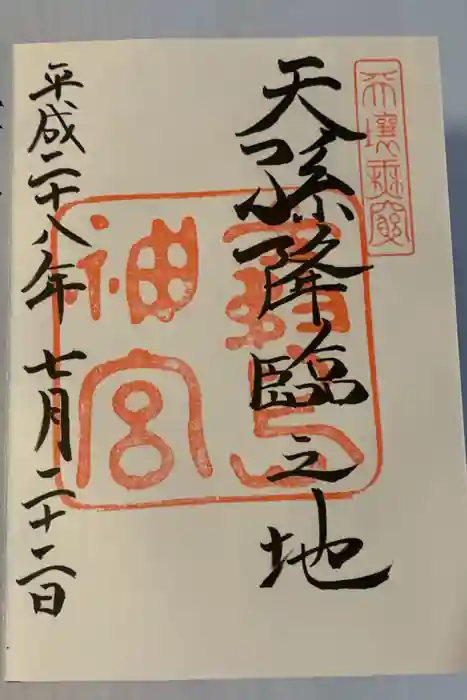 天壤無窮
天孫降臨之地
霧島
神宮
平成二十八年七月二十二日